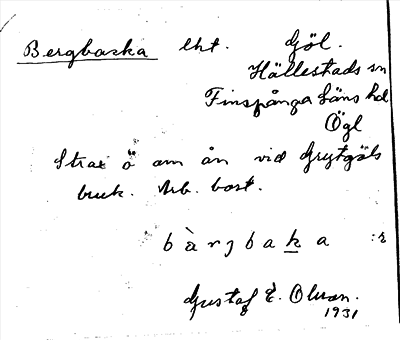 Bergbacka lht. Göl.
Hällestads sn
Finspånga läns hd
Ögl
Strax ö om ån vid Grytgöls
bruk. Arb. bost.
bàrjbaka :r
Gustaf E. Olson.
1931